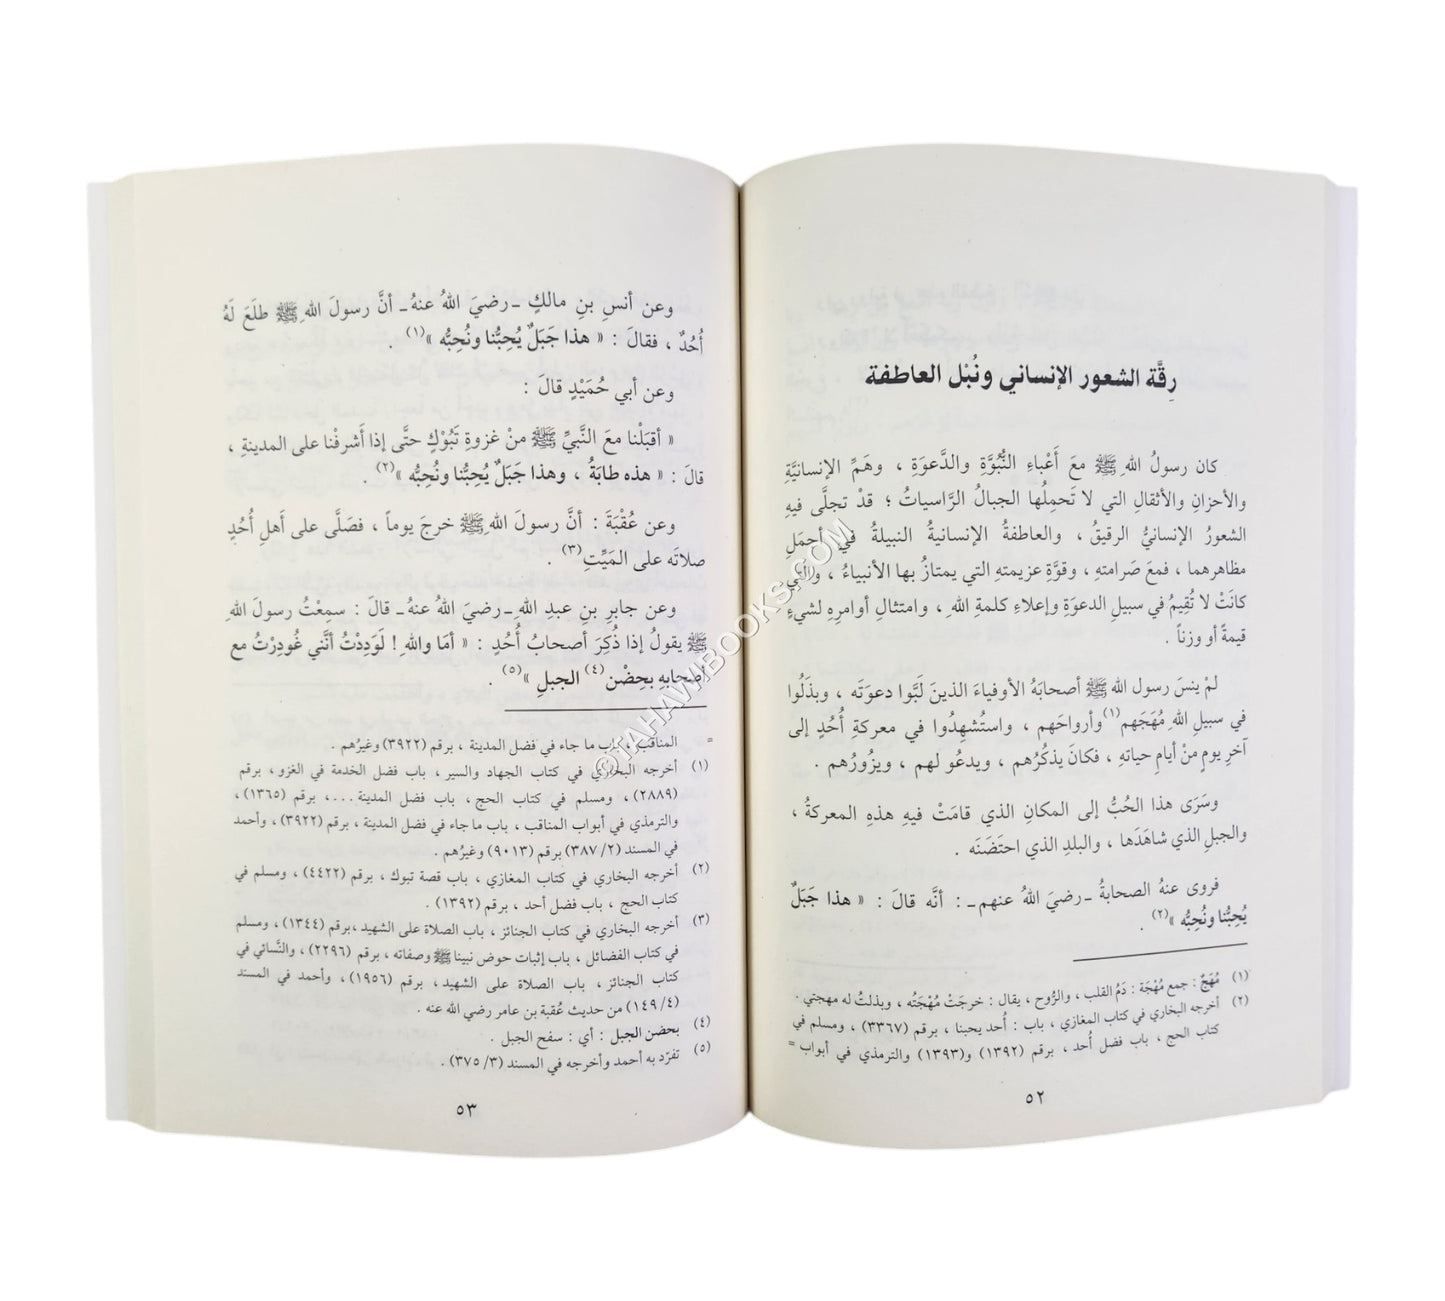 رِقَّة الشعور الإنساني ونُبْل العاطفة
كان رسولُ اللهِ ﷺ معَ أَعْباءِ النُّبُوَّةِ والدَّعوَةِ ، وهَمِّ الإنسانيَّةِ
والأحزانِ والأثقالِ التي لا تَحمِلُها الجبالُ الرَّاسياتُ ؛ قدْ تجلَّى فيهِ
الشعورُ الإنسانيُّ الرقيقُ ، والعاطفةُ الإنسانيةُ النبيلةُ في أجمَلِ
مظاهرهما ، فمعَ صَرامتهِ ، وقوَّةِ عزيمتهِ التي يمتازُ بها الأنبياءُ ، والتي
كانَتْ لا تُقِيمُ في سبيلِ الدعوَةِ وإعلاءِ كلمةِ اللهِ ، وامتثالِ أوامرِهِ لشيءٍ
قيمةً أو وزناً .
لمْ ينسَ رسول الله ﷺ أصحابَهُ الأوفياءَ الذينَ لَبَّوا دعوَتَه ، وبذَلُوا
في سبيلِ اللهِ مُهَجَهم(١) وأرواحَهم ، واستُشهِدُوا في معركةِ أُحُدٍ إلى
آخرِ يومٍ منْ أيامِ حياتهِ ، فكانَ يذكُرُهم ، ويدعُو لهم ، ويزُورُهم .
وسَرَى هذا الحُبُّ إلى المكانِ الذي قامَتْ فيهِ هذهِ المعركةُ ،
والجبلِ الذي شاهَدَها ، والبلدِ الذي احتَضَنَه .
فروى عنهُ الصحابةُ ـ رضيَ اللهُ عنهم ـ : أنَّه قالَ : « هذا جَبَلٌ
يُحِبُّنا ونُحِبُّه »(٢) .
(١) مُهَجٌ : جمع مُهْجَة : دَمُ القلب ، والرُّوح ، يقال : خرجَتْ مُهْجَتُه ، وبذلتُ له مهجتي .
(٢) أخرجه البخاري في كتاب المغازي ، باب : أُحد يحبنا ، برقم (٣٣٦٧) ، ومسلم في
كتاب الحج ، باب فضل أُحد ، برقم (١٣٩٢) و(١٣٩٣) والترمذي في أبواب =
٥٢
وعن أنسِ بنِ مالكٍ ـ رضيَ اللهُ عنهُ ـ أنَّ رسولَ اللهِ ﷺ طلَعَ لَهُ
أُحُدٌ ، فقالَ : « هذا جَبَلٌ يُحِبُّنا ونُحِبُّه »(١) .
وعن أبي حُمَيْدٍ قالَ :
« أقبَلْنا معَ النَّبيِّ ﷺ منْ غزوةِ تَبُوْكٍ حتَّى إذا أَشرفْنا على المدينةِ ،
قالَ : « هذه طابَةُ ، وهذا جَبَلٌ يُحِبُّنا ونُحِبُّه »(٢) .
وعن عُقْبَةَ : أنَّ رسولَ اللهِ ﷺ خرجَ يوماً ، فصَلَّى على أَهلِ أُحُدٍ
صلاتَه على المَيِّتِ(٣) .
وعن جابرِ بنِ عبدِ اللهِ ـ رضيَ اللهُ عنهُ ـ قالَ : سمِعْتُ رسولَ اللهِ
ﷺ يقولُ إذا ذُكِرَ أصحابُ أُحُدٍ : « أمَا واللهِ ! لَوَدِدْتُ أنَّني غُودِرْتُ مع
أصحابهِ بحِضْن(٤) الجبلِ »(٥) .
= المناقب ، باب ما جاء في فضل المدينة ، برقم (٣٩٢٢) وغيرُهم .
(١) أخرجه البخاري في كتاب الجهاد والسير ، باب فضل الخدمة في الغزو ، برقم
(٢٨٨٩) ، ومسلم في كتاب الحج ، باب فضل المدينة ... ، برقم (١٣٦٥) ،
والترمذي في أبواب المناقب ، باب ما جاء في فضل المدينة ، برقم (٣٩٢٢) ، وأحمد
في المسند (٢/ ٣٨٧) برقم (٩٠١٣) وغيرُهم .
(٢) أخرجه البخاري في كتاب المغازي ، باب قصة تبوك ، برقم (٤٤٢٢) ، ومسلم في
كتاب الحج ، باب فضل أحد ، برقم (١٣٩٢) .
(٣) أخرجه البخاري في كتاب الجنائز ، باب الصلاة على الشهيد ، برقم (١٣٤٤) ، ومسلم
في كتاب الفضائل ، باب إثبات حوض نبينا ﷺ وصفاته ، برقم (٢٢٩٦) ، والنَّسائي في
كتاب الجنائز ، باب الصلاة على الشهيد ، برقم (١٩٥٦) ، وأحمد في المسند
(٤/ ١٤٩) من حديث عُقبة بن عامر رضي الله عنه .
(٤) بحضن الجبل : أي : سفح الجبل .
(٥) تفرّد به أحمد وأخرجه في المسند (٣/ ٣٧٥) .
٥٣
©TAHAWIBOOKS.COM